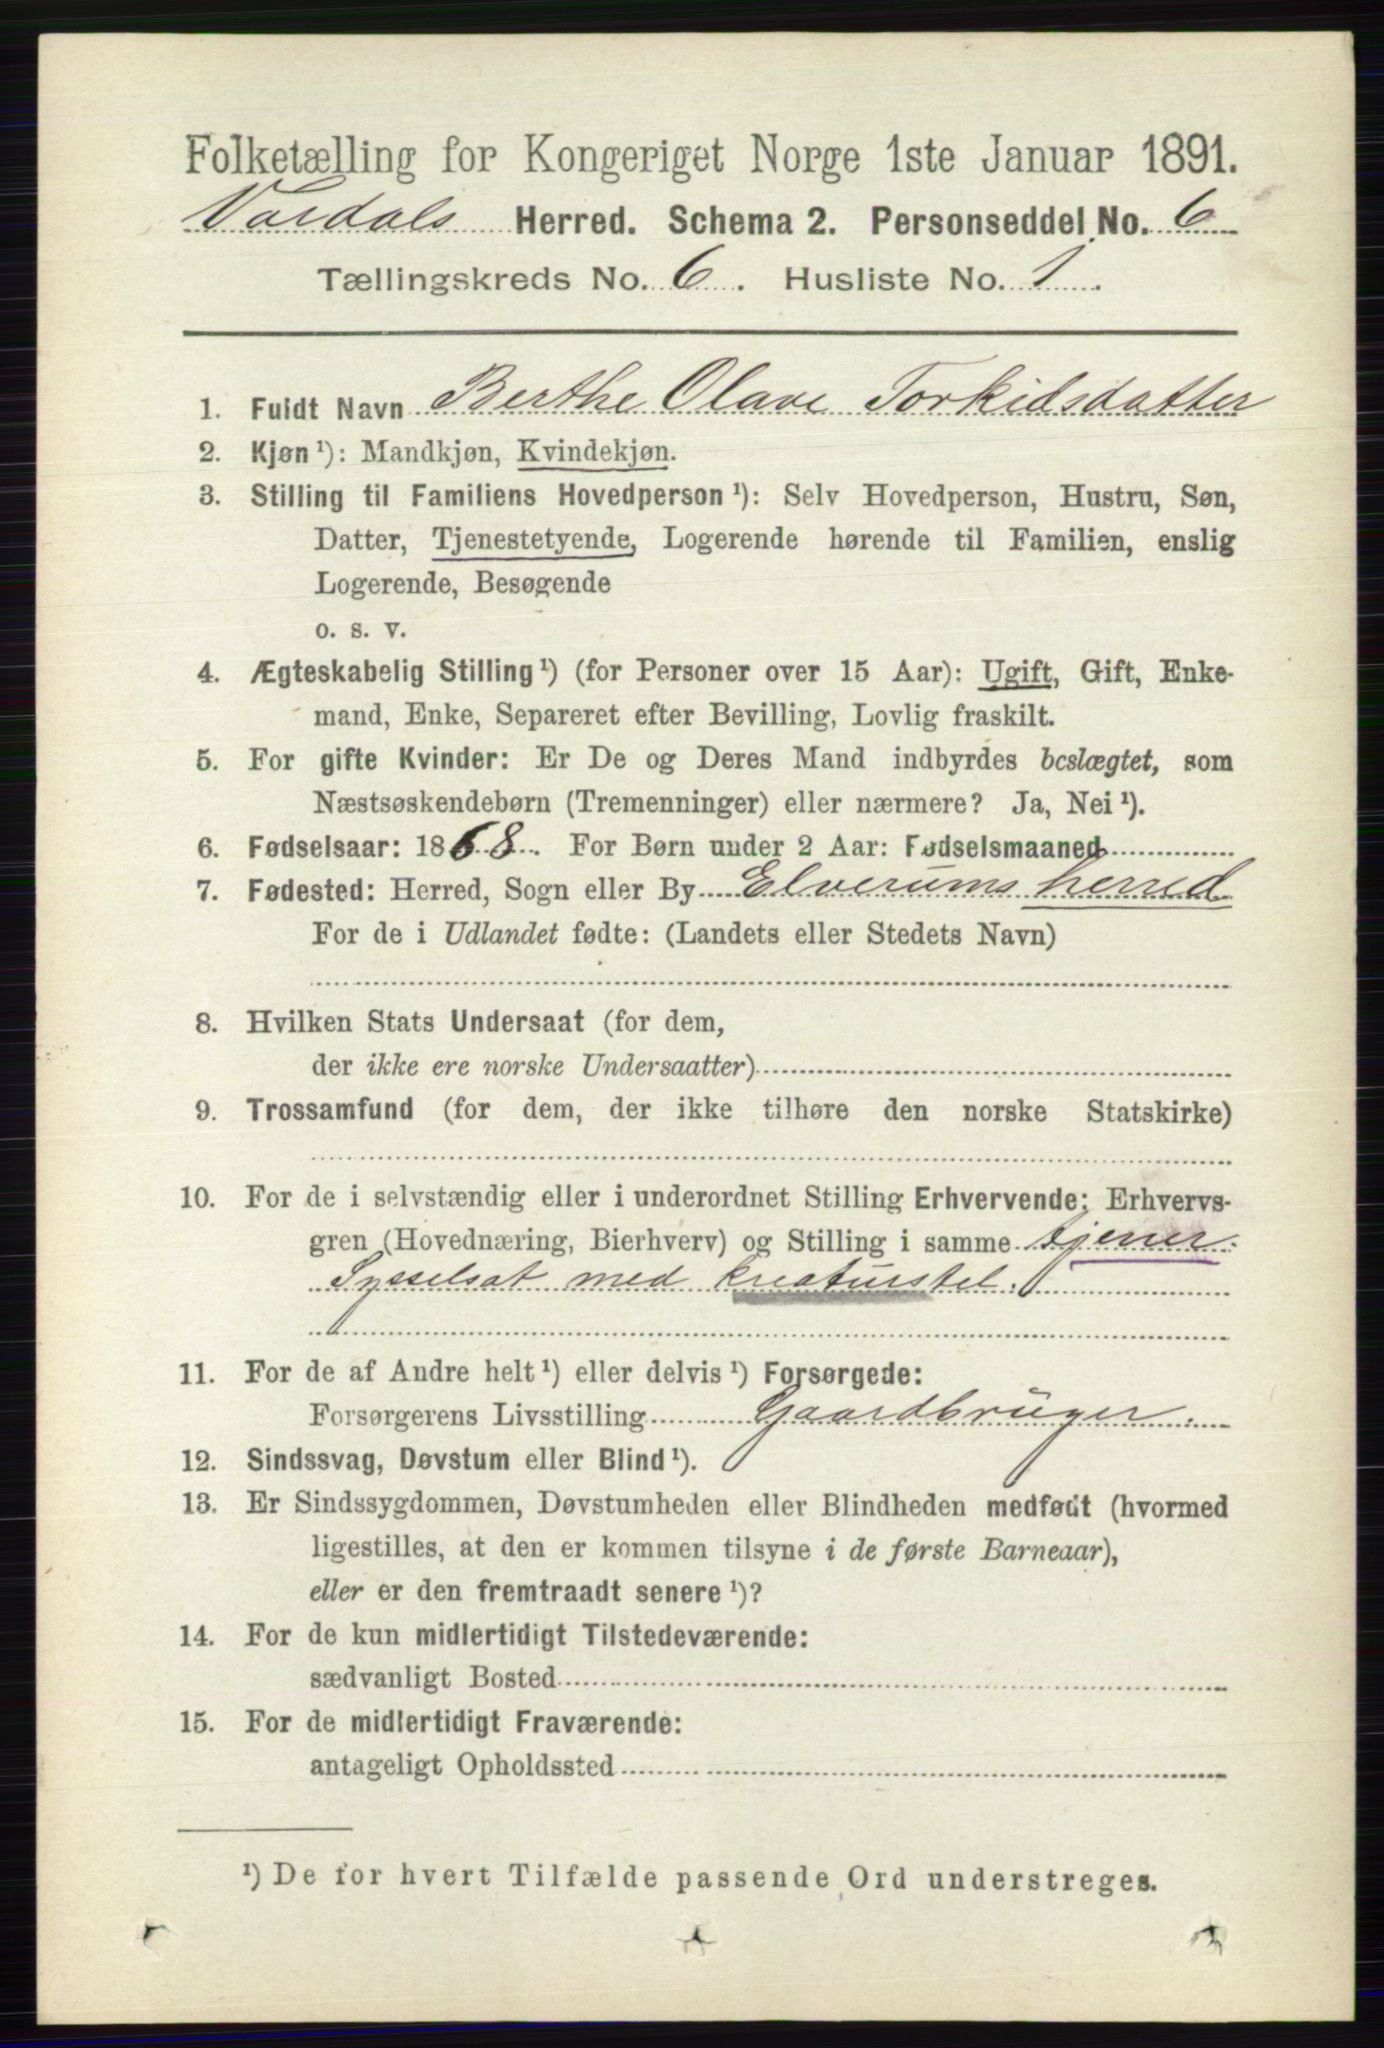 Folketælling for Kongeriget Norge 1ste Januar 1891.
Vardals Herred. Schema 2. Personseddel No. 6
Tællingskreds No. 6. Husliste No. 1.
1. Fuldt Navn Berthe Olave Torkidsdatter
2. Kjøn ¹): Mandkjøn, Kvindekjøn.
3. Stilling til Familiens Hovedperson ¹): Selv Hovedperson, Hustru, Søn,
Datter, Tjenestetyende, Logerende hørende til Familien, enslig
Logerende, Besøgende
o. s. v.
4. Ægteskabelig Stilling ¹) (for Personer over 15 Aar): Ugift, Gift, Enke-
mand, Enke, Separeret efter Bevilling, Lovlig fraskilt.
5. For gifte Kvinder: Er De og Deres Mand indbyrdes beslægtet, som
Næstsøskendebørn (Tremenninger) eller nærmere? Ja, Nei ¹).
6. Fødselsaar: 1868. For Børn under 2 Aar: Fødselsmaaned
7. Fødested: Herred, Sogn eller By Elverums herred
For de i Udlandet fødte: (Landets eller Stedets Navn)
8. Hvilken Stats Undersaat (for dem,
der ikke ere norske Undersaatter)
9. Trossamfund (for dem, der ikke tilhøre den norske Statskirke)
10. For de i selvstændig eller i underordnet Stilling Erhvervende: Erhvervs-
gren (Hovednæring, Bierhverv) og Stilling i samme tjener.
Sysselsat med kreaturstel.
11. For de af Andre helt ¹) eller delvis ¹) Forsørgede:
Forsørgerens Livsstilling Gaardbruger.
12. Sindssvag, Døvstum eller Blind ¹).
13. Er Sindssygdommen, Døvstumheden eller Blindheden medfødt (hvormed
ligestilles, at den er kommen tilsyne i de første Barneaar),
eller er den fremtraadt senere ¹)?
14. For de kun midlertidigt Tilstedeværende:
sædvanligt Bosted
15. For de midlertidigt Fraværende:
antageligt Opholdssted
¹) De for hvert Tilfælde passende Ord understreges.